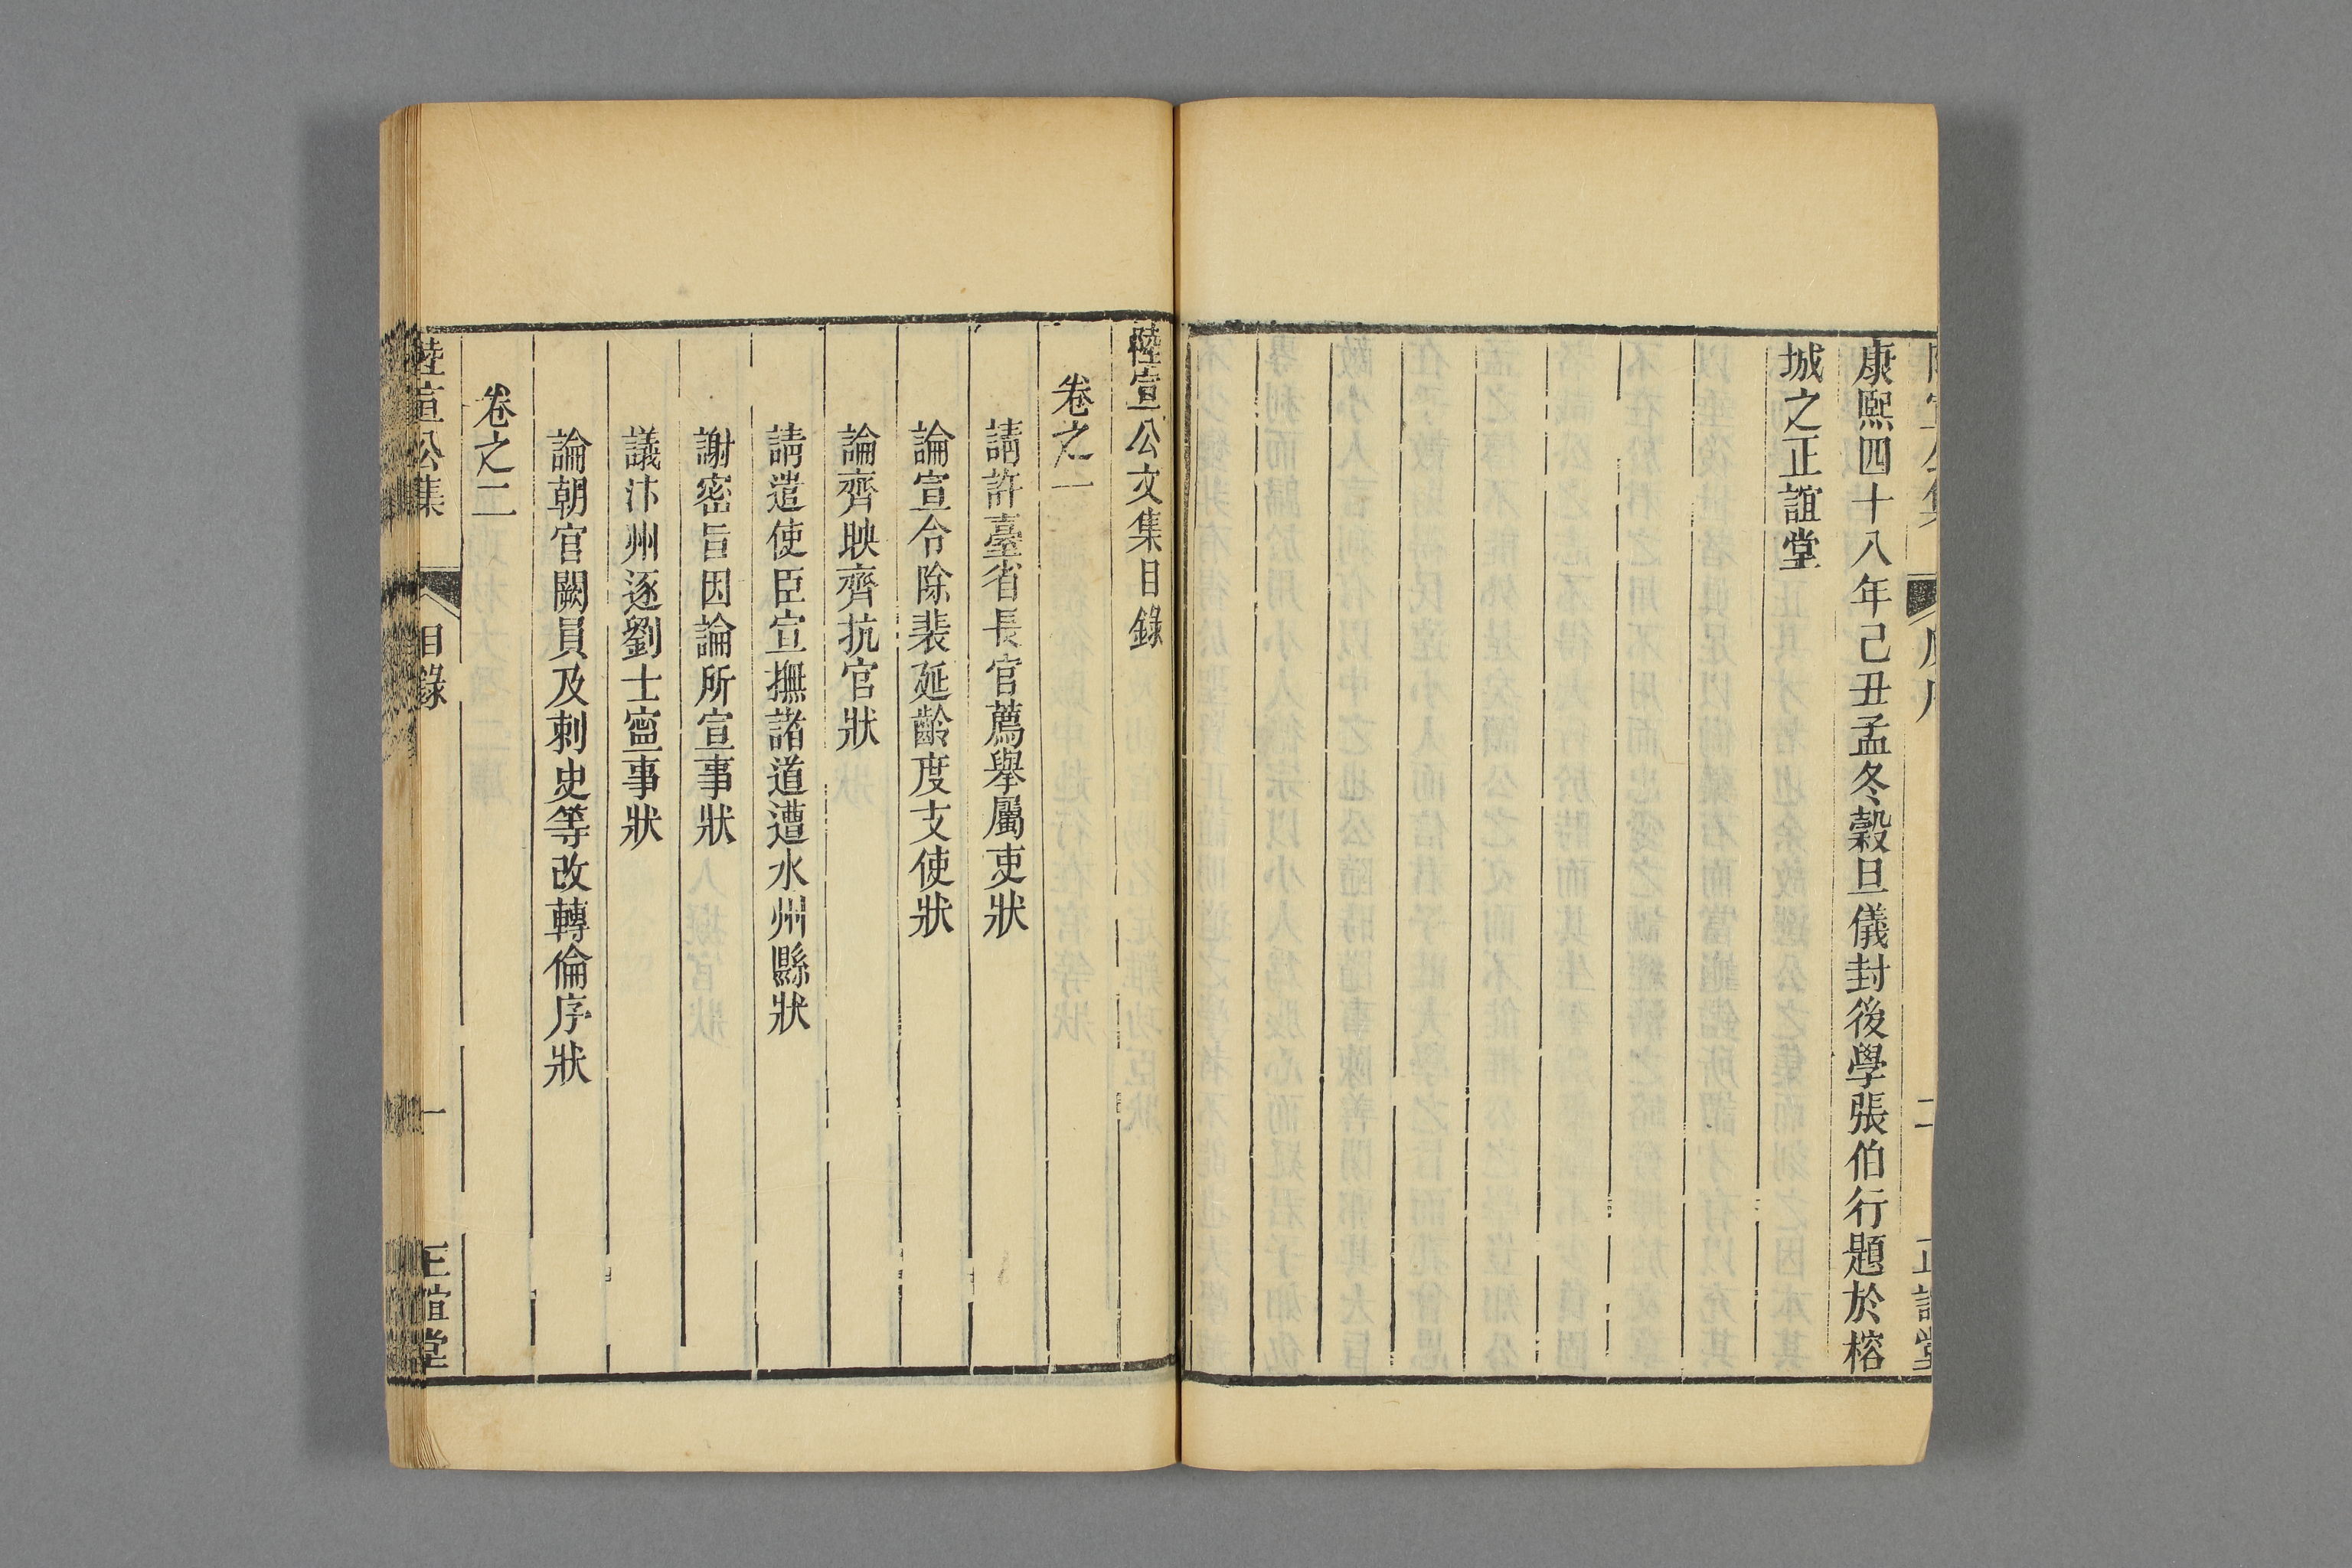 康熙四十八年己丑孟冬穀旦儀封後學張伯行題於榕
城之正誼堂
陸宣公文集目錄
卷之一
請許臺省長官薦舉屬吏狀
論宣令除裴延齡度支使狀
論齊映齊抗官狀
請遣使臣宣撫諸道遭水州縣狀
謝密旨因論所宣事狀
議汴州逐劉士寧事狀
論朝官闕員及刺史等改轉倫序狀
卷之二
陸宣公集
目錄
一
正誼堂